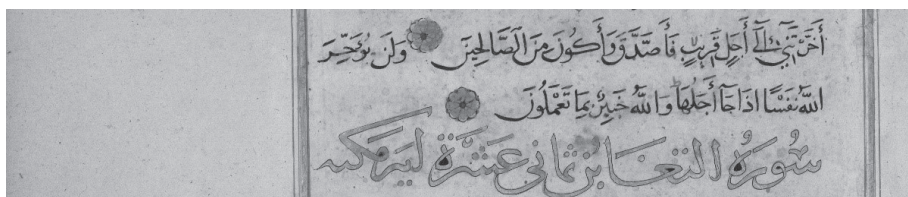 أَخَّرْتَنِي إِلَى أَجَلٍ قَرِيبٍ فَأَصَّدَّقَ وَأَكُونَ مِنَ الصَّالِحِينَ وَلَن يُؤَخِّرَ
اللَّهُ نَفْسًا اذَا جَآ أَجَلُهَا وَاللَّهُ خَبِيرٌ بِمَا تَعْمَلُونَ
سُورَةُ التغَابُن ثمانى عَشَرَة